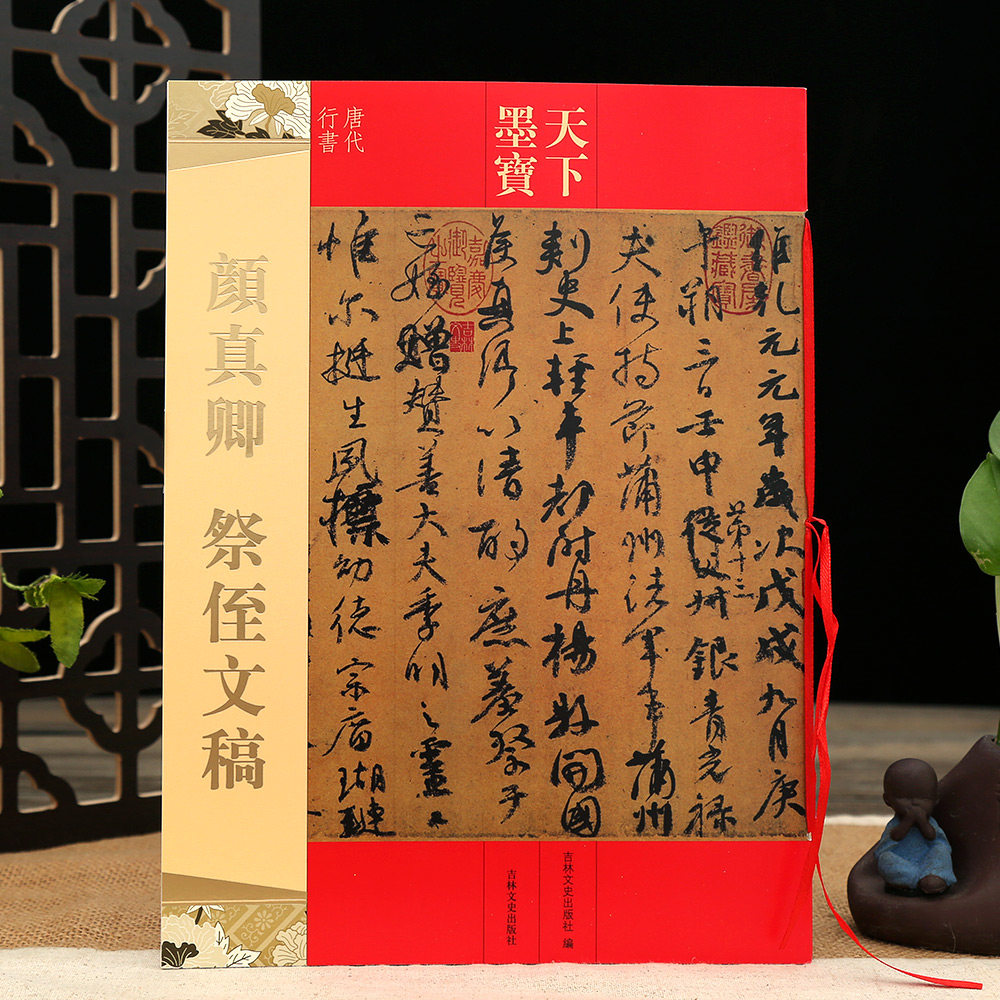 唐代
行書
天下
墨寶
顔真卿 祭侄文稿
維乾元元年歲次戊戌九月庚
午朔三日壬申第十三銀青光祿
夫使持節蒲州諸軍事蒲州
刺史上輕車都尉丹楊縣開國
侯真卿以清酌庶羞祭于
亡姪贈贊善大夫季明之靈曰
惟爾挺生夙標幼德宗廟瑚璉
御書房鑑藏寶
嘉慶御覽之寶
吉林文史出版社 編
吉林文史出版社